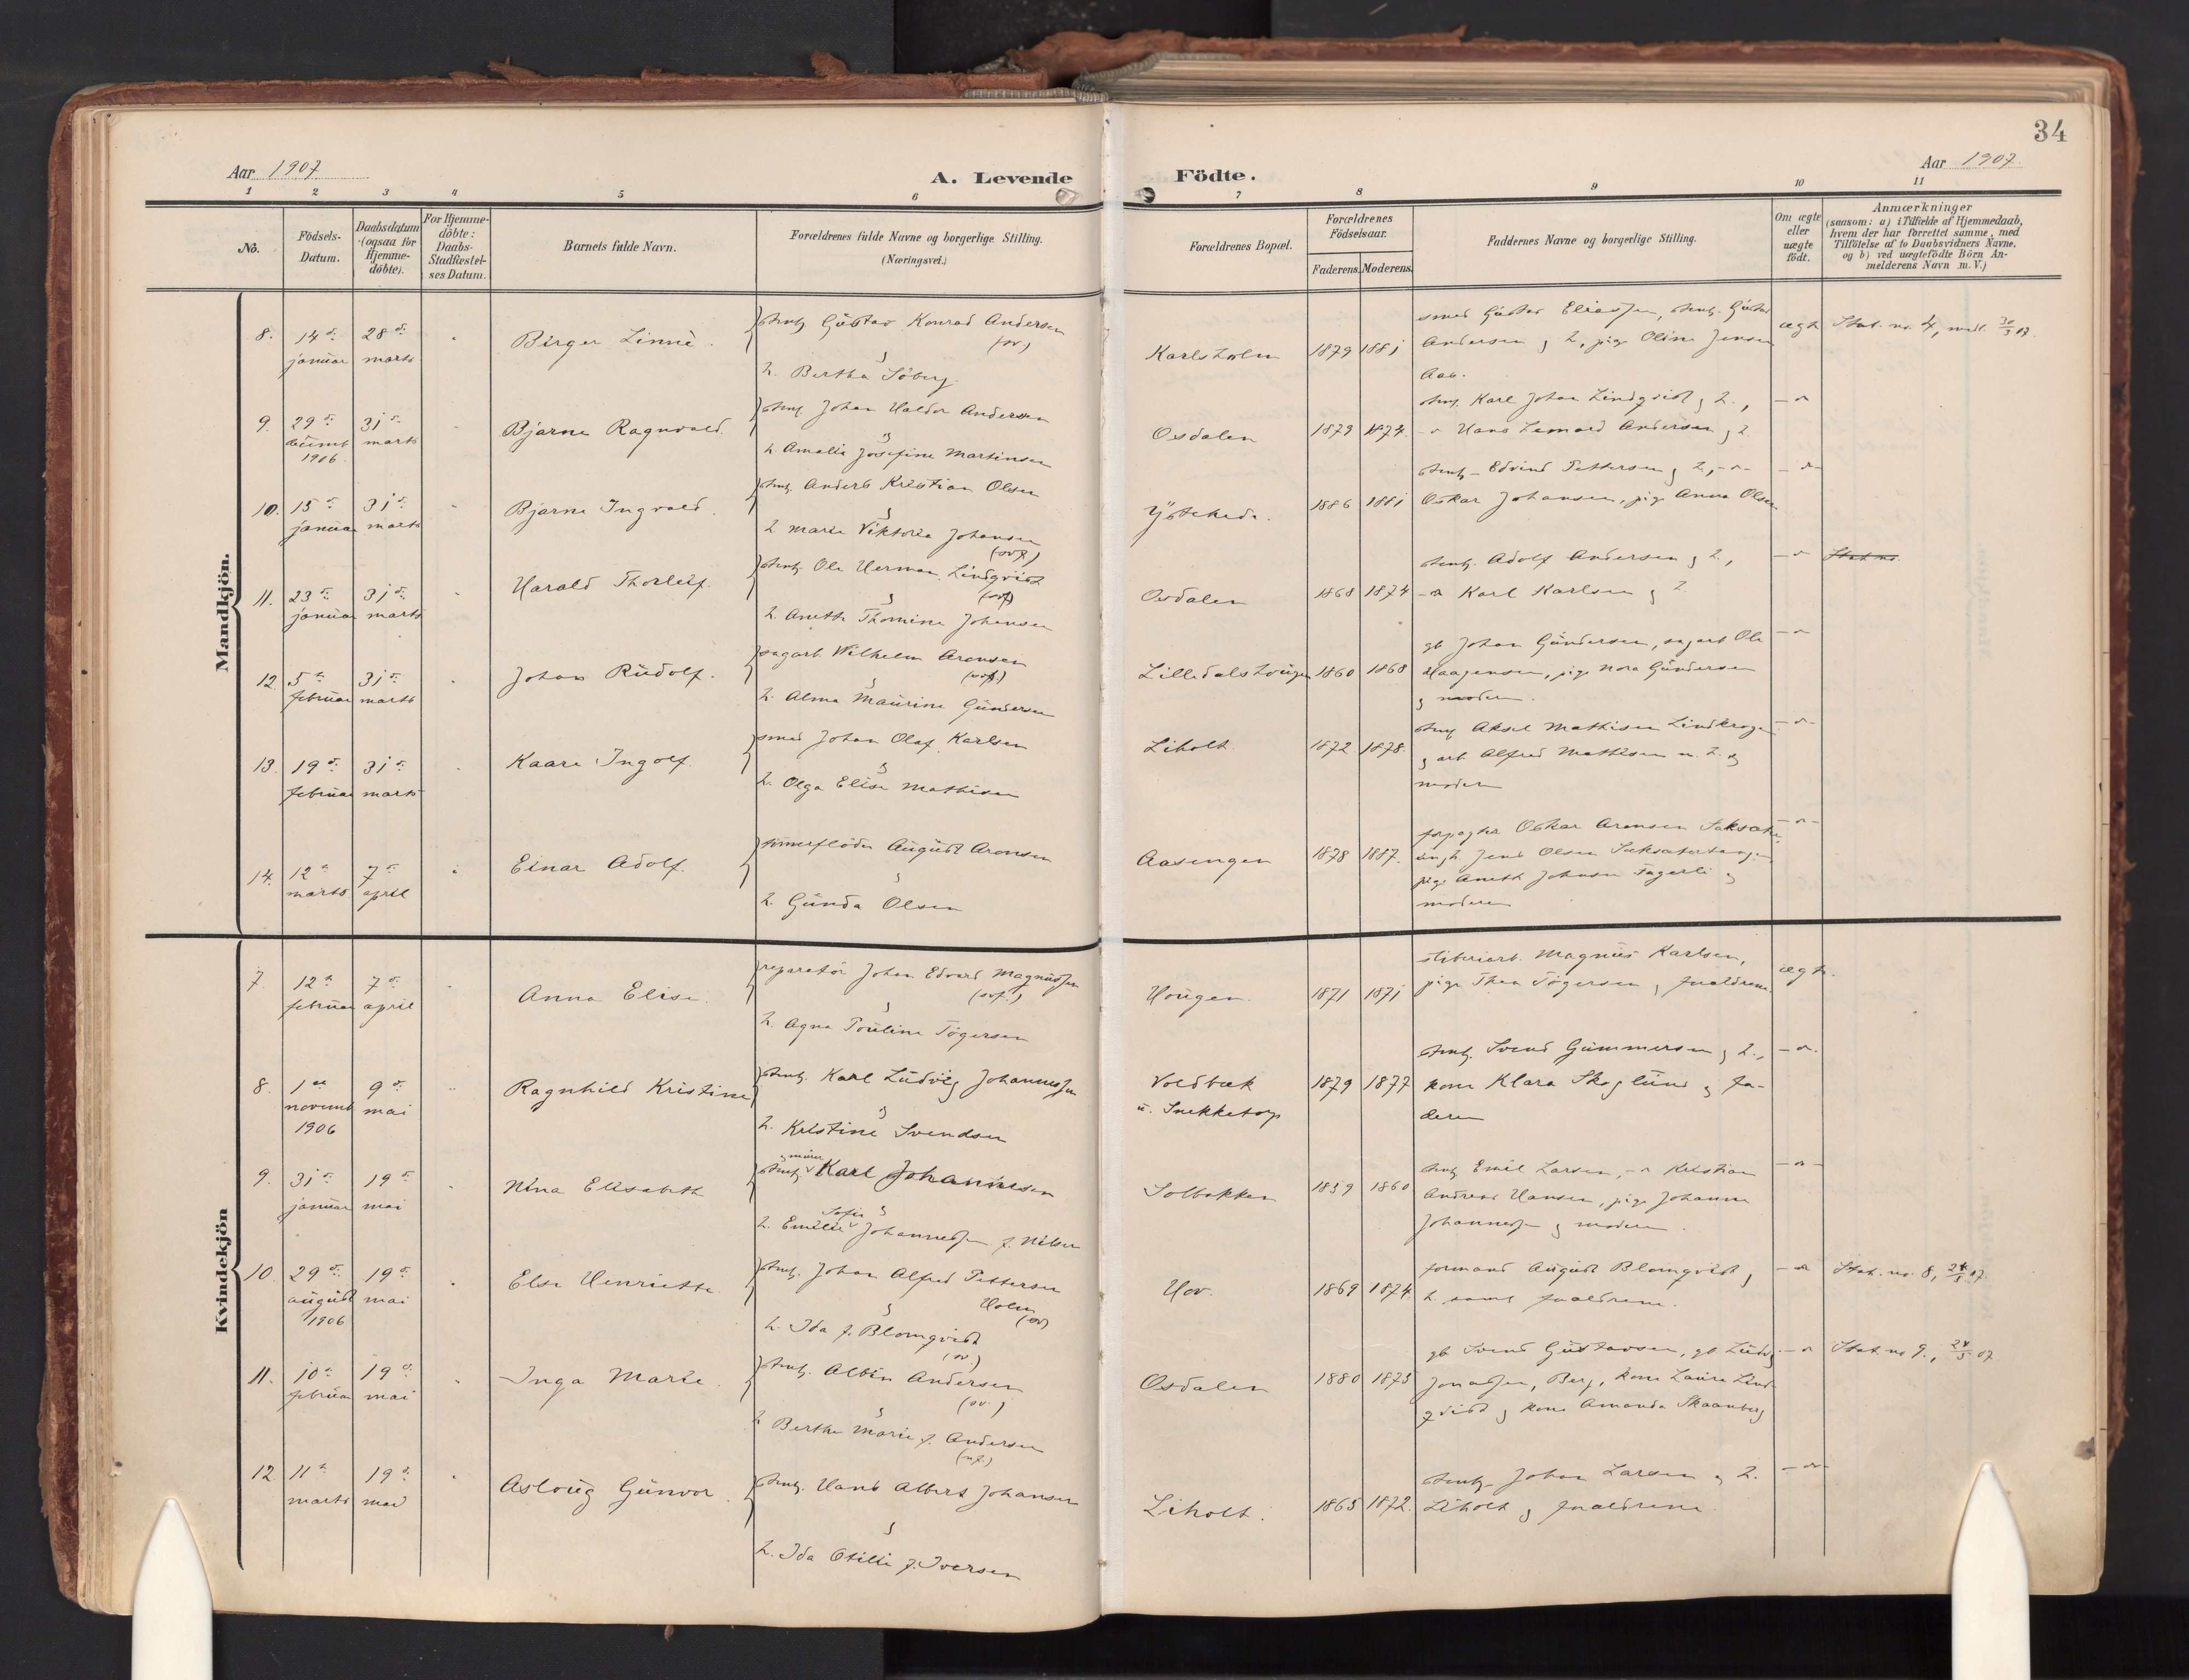 34
Aar 1907
A. Levende
Födte.
Aar 1907.
1 2 3 4 5 6 7 8 9 10 11
No.
Födsels-Datum.
Daabsdatum (ogsaa for Hjemme-döbte).
For Hjemme-döbte: Daabs-Stadfæstel-ses Datum.
Barnets fulde Navn.
Forældrenes fulde Navne og borgerlige Stilling. (Næringsvei.)
Forældrenes Bopæl.
Forældrenes Födselsaar.
Faderens. Moderens.
Faddernes Navne og borgerlige Stilling.
Om ægte eller uægte födt.
Anmærkninger
(saasom: a) i Tilfælde af Hjemmedaab,
hvem der har forrettet samme, med
Tilföielse af to Daabsvidners Navne,
og b) ved uægtefödte Börn An-
melderens Navn m. V.)
Mandkjön.
8. 14de januar 28de marts
Birger Linné.
stenh. Gustav Konrad Andersen (sv.)
&
h. Bertha Söberg.
Karlsholm 1879 1881
smed Gustav Eliassen, stenh. Gustav
Andersen & h, pige Oline Jensen
Aas.
ægte Stat. no. 4, medt. 30/3 07.
9. 29de decembr 1906. 31de marts
Bjarne Ragnvald.
stenh. Johan Haldor Andersen
&
h. Amalie Josefine Martinsen
Osdalen 1879 1874.
stenh. Karl Johan Lindqvist & h.,
Hans Lennard Andersen & h
10. 15de januar 31de marts
Bjarne Ingvald.
stenh. Anders Kristian Olsen
&
h Marie Viktoria Johansen (svf.)
Ystehede. 1886 1881
stenh. Edvind Pettersen & h,
Oskar Johansen, pige Anna Olsen
11. 23de januar 31de marts
Harald Thorleif.
stenh. Ole Herman Lindqvist (svf.)
&
h. Anette Thomine Johansen
Osdalen 1868 1874
stenh. Adolf Andersen & h,
Karl Karlsen & h
Stat. no.
12 5te februar 31de marts
Johan Rudolf.
sagarb. Wilhelm Aronsen (svf.)
&
h. Alma Maurine Gundersen
Lilledalshougen 1860 1868
gb Johan Gundersen, sagarb Ole
Haagensen, pige Nora Gundersen
& moderen.
13. 19de februar 31de marts
Kaare Ingolf.
smed Johan Olaf Karlsen
&
h. Olga Elise Mathisen
Liholt 1872. 1878.
stenh Aksel Mathisen
& arb Alfred Mathisen m. h. &
moderen
14. 12te marts 7de april
Einar Adolf.
tömmerflöder August Aronsen
&
h. Gunda Olsen
Aasengen 1878 1887.
forpagter Oskar Aronsen
ungk. Jens Olsen
pige Anette Johnsen Fagerli &
moderen
Kvindekjön
7. 12te februar 7de april
Anna Elise.
reparatör Johan Edvard Magnussen (svf.)
&
h. Agna Pouline Tögersen
Hougen. 1871 1871
stiberiarb. Magnus Karlsen,
pige Thea Tögersen & forældrene
ægte.
8. 1ste novemb 1906 9de mai
Ragnhild Kristine
stenh. Karl Ludvig Johannessen
&
h. Kristine Svendsen
Voldbæk
u. Snekketorp 1879 1877
stenh. Svend Gummersen & h.,
kone Klara Skoglund & fa-
deren
9. 31de januar 19de mai
Nina Elisabeth
stenh. & murer Karl Johannesen
&
h. Emilie Sofie Johannessen f. Nilsen
Solbakken 1859 1860
stenh Emil Larsen, Kristian
Andreas Hansen, pige Johanne
Johannessen & moderen.
10. 29de august 1906 19de mai
Else Henriette.
stenh. Johan Alfred Pettersen Holm (sv)
&
h. Ida f. Blomqvist (sv.)
Hov. 1869 1874.
formand August Blomqvist &
h. samt forældrene.
Stat. no. 8, 24/5 07
11. 10de februar 19de mai
Inga Marie.
stenh. Albin Andersen (sv.)
&
h Berthe Marie f. Andersen
Osdalen 1880 1875
gb Svend Gustavsen, gb Ludv.
Jonassen, Berg, kone Laura Lind-
qvist & kone Amanda Skaanberg
Stat. no 9., 24/5 07
12 11te marts 19de mai
Asloug Gunvor.
stenh. Hans Albert Johansen
&
h. Ida Otilie f. Iversen
Liholt. 1865 1872.
stenh. Johan Larsen & h.
Liholt & forældrene.